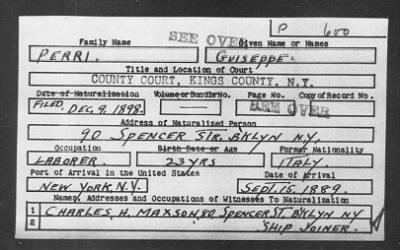 P 600
SEE OVER
Family Name Given Name or Names
PERRI. GUISEPPE.
Title and Location of Court
COUNTY COURT, KINGS COUNTY, N.Y.
Date of Naturalization Volume or Bundle No. Page No. Copy of Record No.
FILED, DEC. 9, 1898. — SEE OVER
Address of Naturalized Person
90 SPENCER STR. BKLYN N.Y.
Occupation Birth Date or Age Former Nationality
LABORER. 23 YRS ITALY.
Port of Arrival in the United States Date of Arrival
NEW YORK, N.Y. SEPT. 15, 1889.
Names, Addresses and Occupations of Witnesses To Naturalization
1 CHARLES, H. MAXSON, 80 SPENCER ST BKLYN NY
2 SHIP JOINER.